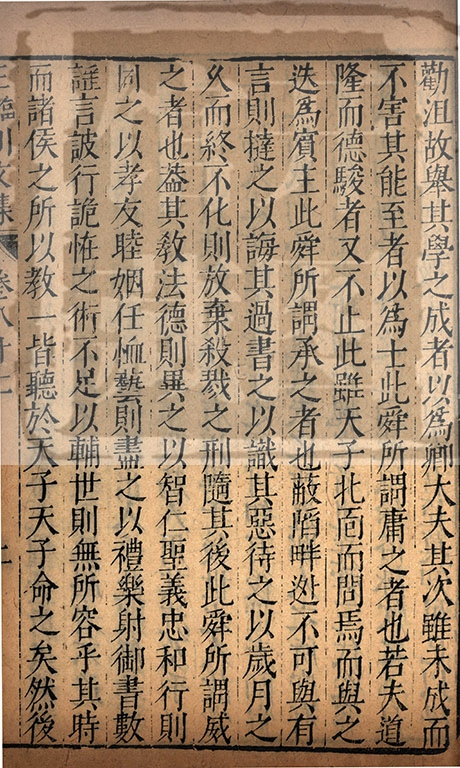 勸沮故舉其學之成者以爲卿大夫其次雖未成而
不害其能至者以爲士此舜所謂庸之者也若夫道
隆而德駿者又不止此雖天子北面而問焉而與之
迭爲賓主此舜所謂承之者也蔽陷畔逃不可與有
言則撻之以誨其過書之以識其惡待之以歲月之
久而終不化則放棄殺戮之刑隨其後此舜所謂威
之者也葢其敎法德則異之以智仁聖義忠和行則
同之以孝友睦婣任恤藝則盡之以禮樂射御書數
謠言詖行詭怪之術不足以輔世則無所容乎其時
而諸侯之所以教一皆聽於天子天子命之矣然後
王臨川文集 卷八十二 二